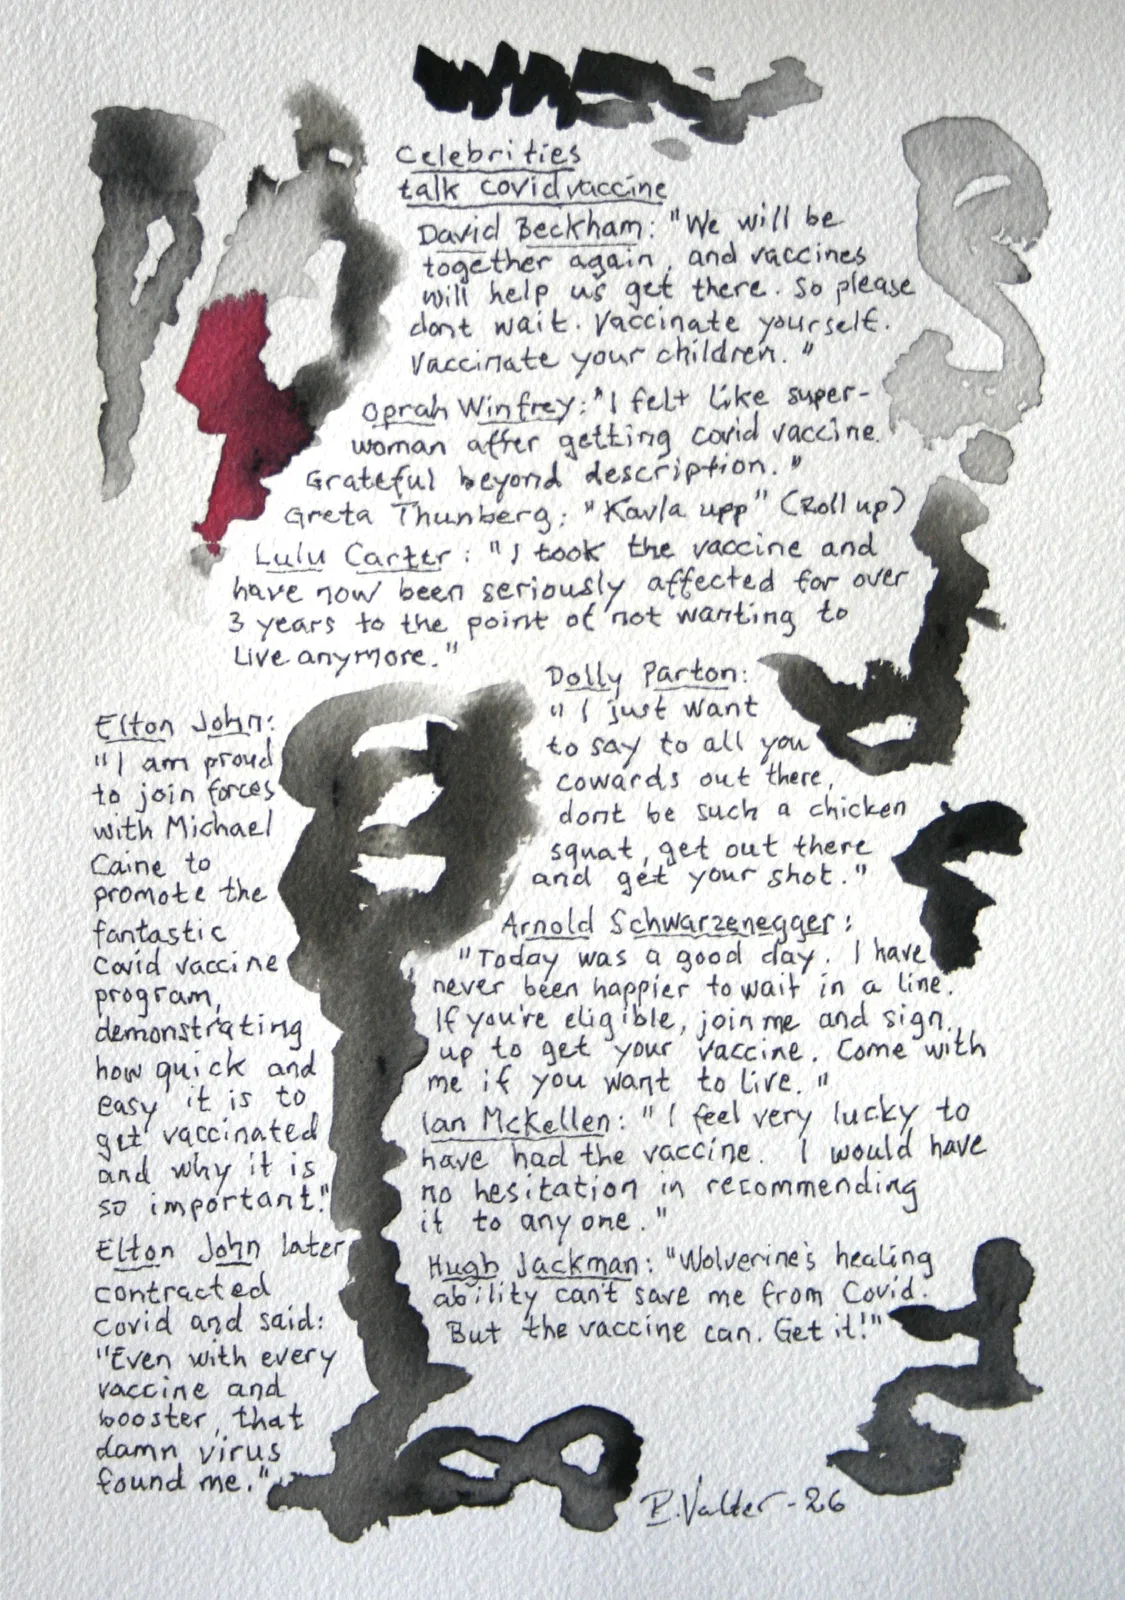 Celebrities
talk covid vaccine
David Beckham: "We will be
together again, and vaccines
will help us get there. So please
dont wait. Vaccinate yourself.
Vaccinate your children."
Oprah Winfrey: "I felt like super-
woman after getting covid vaccine.
Grateful beyond description."
Greta Thunberg: "Kavla upp" (Roll up)
Lulu Carter: "I took the vaccine and
have now been seriously affected for over
3 years to the point of not wanting to
live anymore."
Dolly Parton:
"I just want
to say to all you
cowards out there,
dont be such a chicken
squat, get out there
and get your shot."
Elton John:
"I am proud
to join forces
with Michael
Caine to
promote the
fantastic
Covid vaccine
program,
demonstrating
how quick and
easy it is to
get vaccinated
and why it is
so important."
Elton John later
contracted
Covid and said:
"Even with every
vaccine and
booster, that
damn virus
found me."
Arnold Schwarzenegger:
"Today was a good day. I have
never been happier to wait in a line.
If you're eligible, join me and sign
up to get your vaccine. Come with
me if you want to live."
Ian McKellen: "I feel very lucky to
have had the vaccine. I would have
no hesitation in recommending
it to anyone."
Hugh Jackman: "Wolverine's healing
ability can't save me from Covid.
But the vaccine can. Get it!"
P.Valter -26